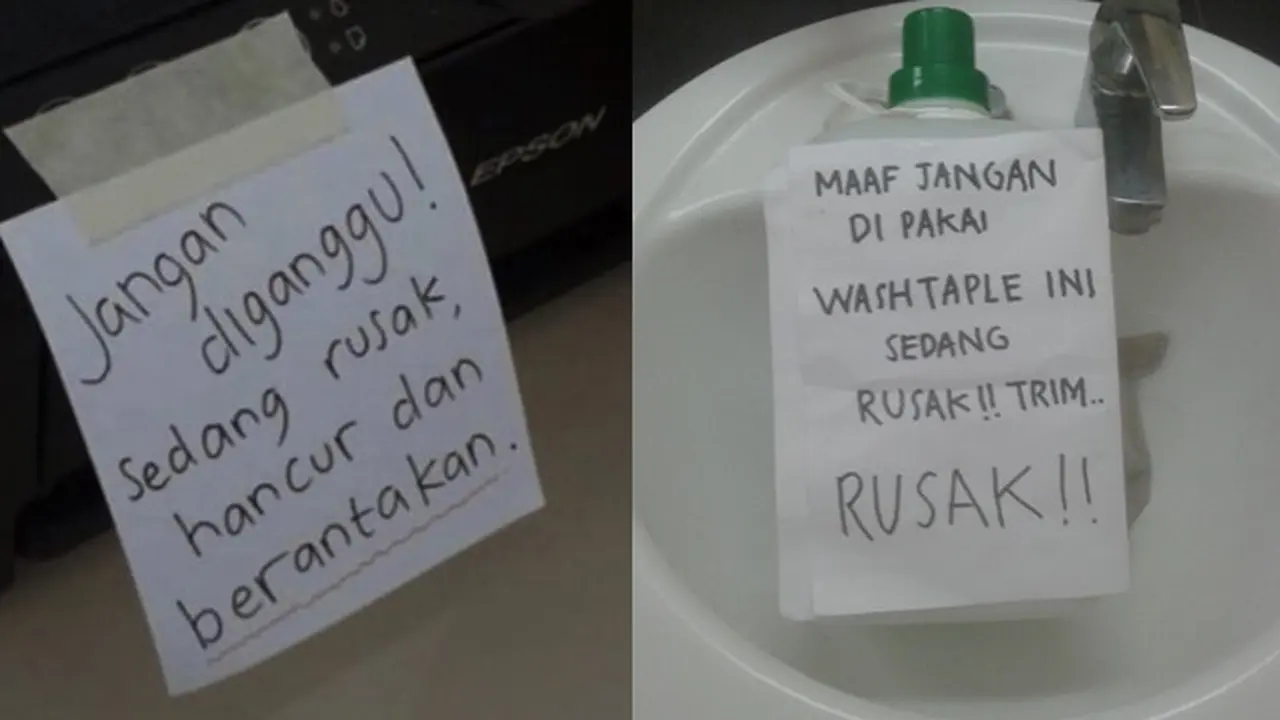 EPSON
Jangan
diganggu!
sedang rusak,
hancur dan
berantakan.
MAAF JANGAN
DI PAKAI
WASHTAPLE INI
SEDANG
RUSAK!! TRIM..
RUSAK!!